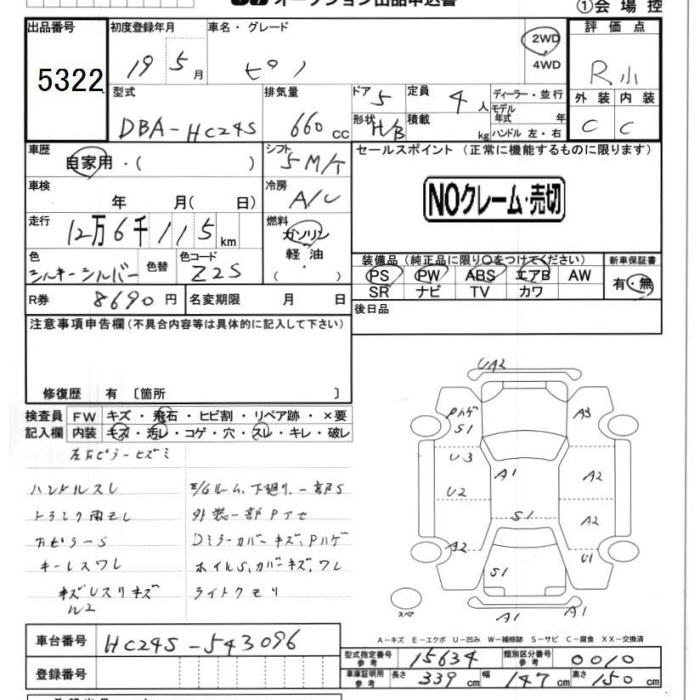 オークション出品申込書
①会場控
出品番号 初度登録年月 車名・グレード 評価点
5322 19 5月 ピノ 2WD 4WD R小
型式 排気量 ドア 5 定員 4人 ディーラー・並行 外装 内装
DBA-HC24S 660cc 形状 H/B 積載 kg モデル年式 年 ハンドル 左・右 C C
車歴 自家用・( ) シフト 5M/T セールスポイント (正常に機能するものに限ります)
車検 年 月( 日) 冷房 A/C NOクレーム・売切
走行 12万6千115km 燃料 ガソリン 軽油・( )
色 シルキーシルバー 色替 色コード Z2S
装備品 (純正品に限り○をつけてください) 新車保証書
PS PW ABS エアB AW 有・無
SR ナビ TV カワ
R券 8690円 名変期限 月 日 後日品
注意事項申告欄(不具合内容等は具体的に記入して下さい)
修復歴 有〔箇所 〕
検査員 FW キズ・飛石・ヒビ割・リペア跡・×要
記入欄 内装 キズ・汚レ・コゲ・穴・スレ・キレ・破レ
左右ピラーヒズミ
ハンドルスレ E/Gルーム、下廻り、一部S
トランク雨モレ 外装一部Pアセ
カピラーS Dミラーカバーキズ、Pハゲ
キーレスワレ ホイルS,カバーキズ,ワレ
キズUスリキズ ライトクモリ
ル2
UA2
Pハゲ S1 A3
U3 A1 A2
U2 S1 A2
A2 S1 U1
スペア A1 A1
A-キズ E-エクボ U-凹み W-補修跡 S-サビ C-腐食 XX-交換済
車台番号 HC24S-543096
型式指定番号 参考 15634 類別区分番号 参考 0010
登録番号 車庫証明用 参考 長さ 339cm 幅 147cm 高さ 150cm